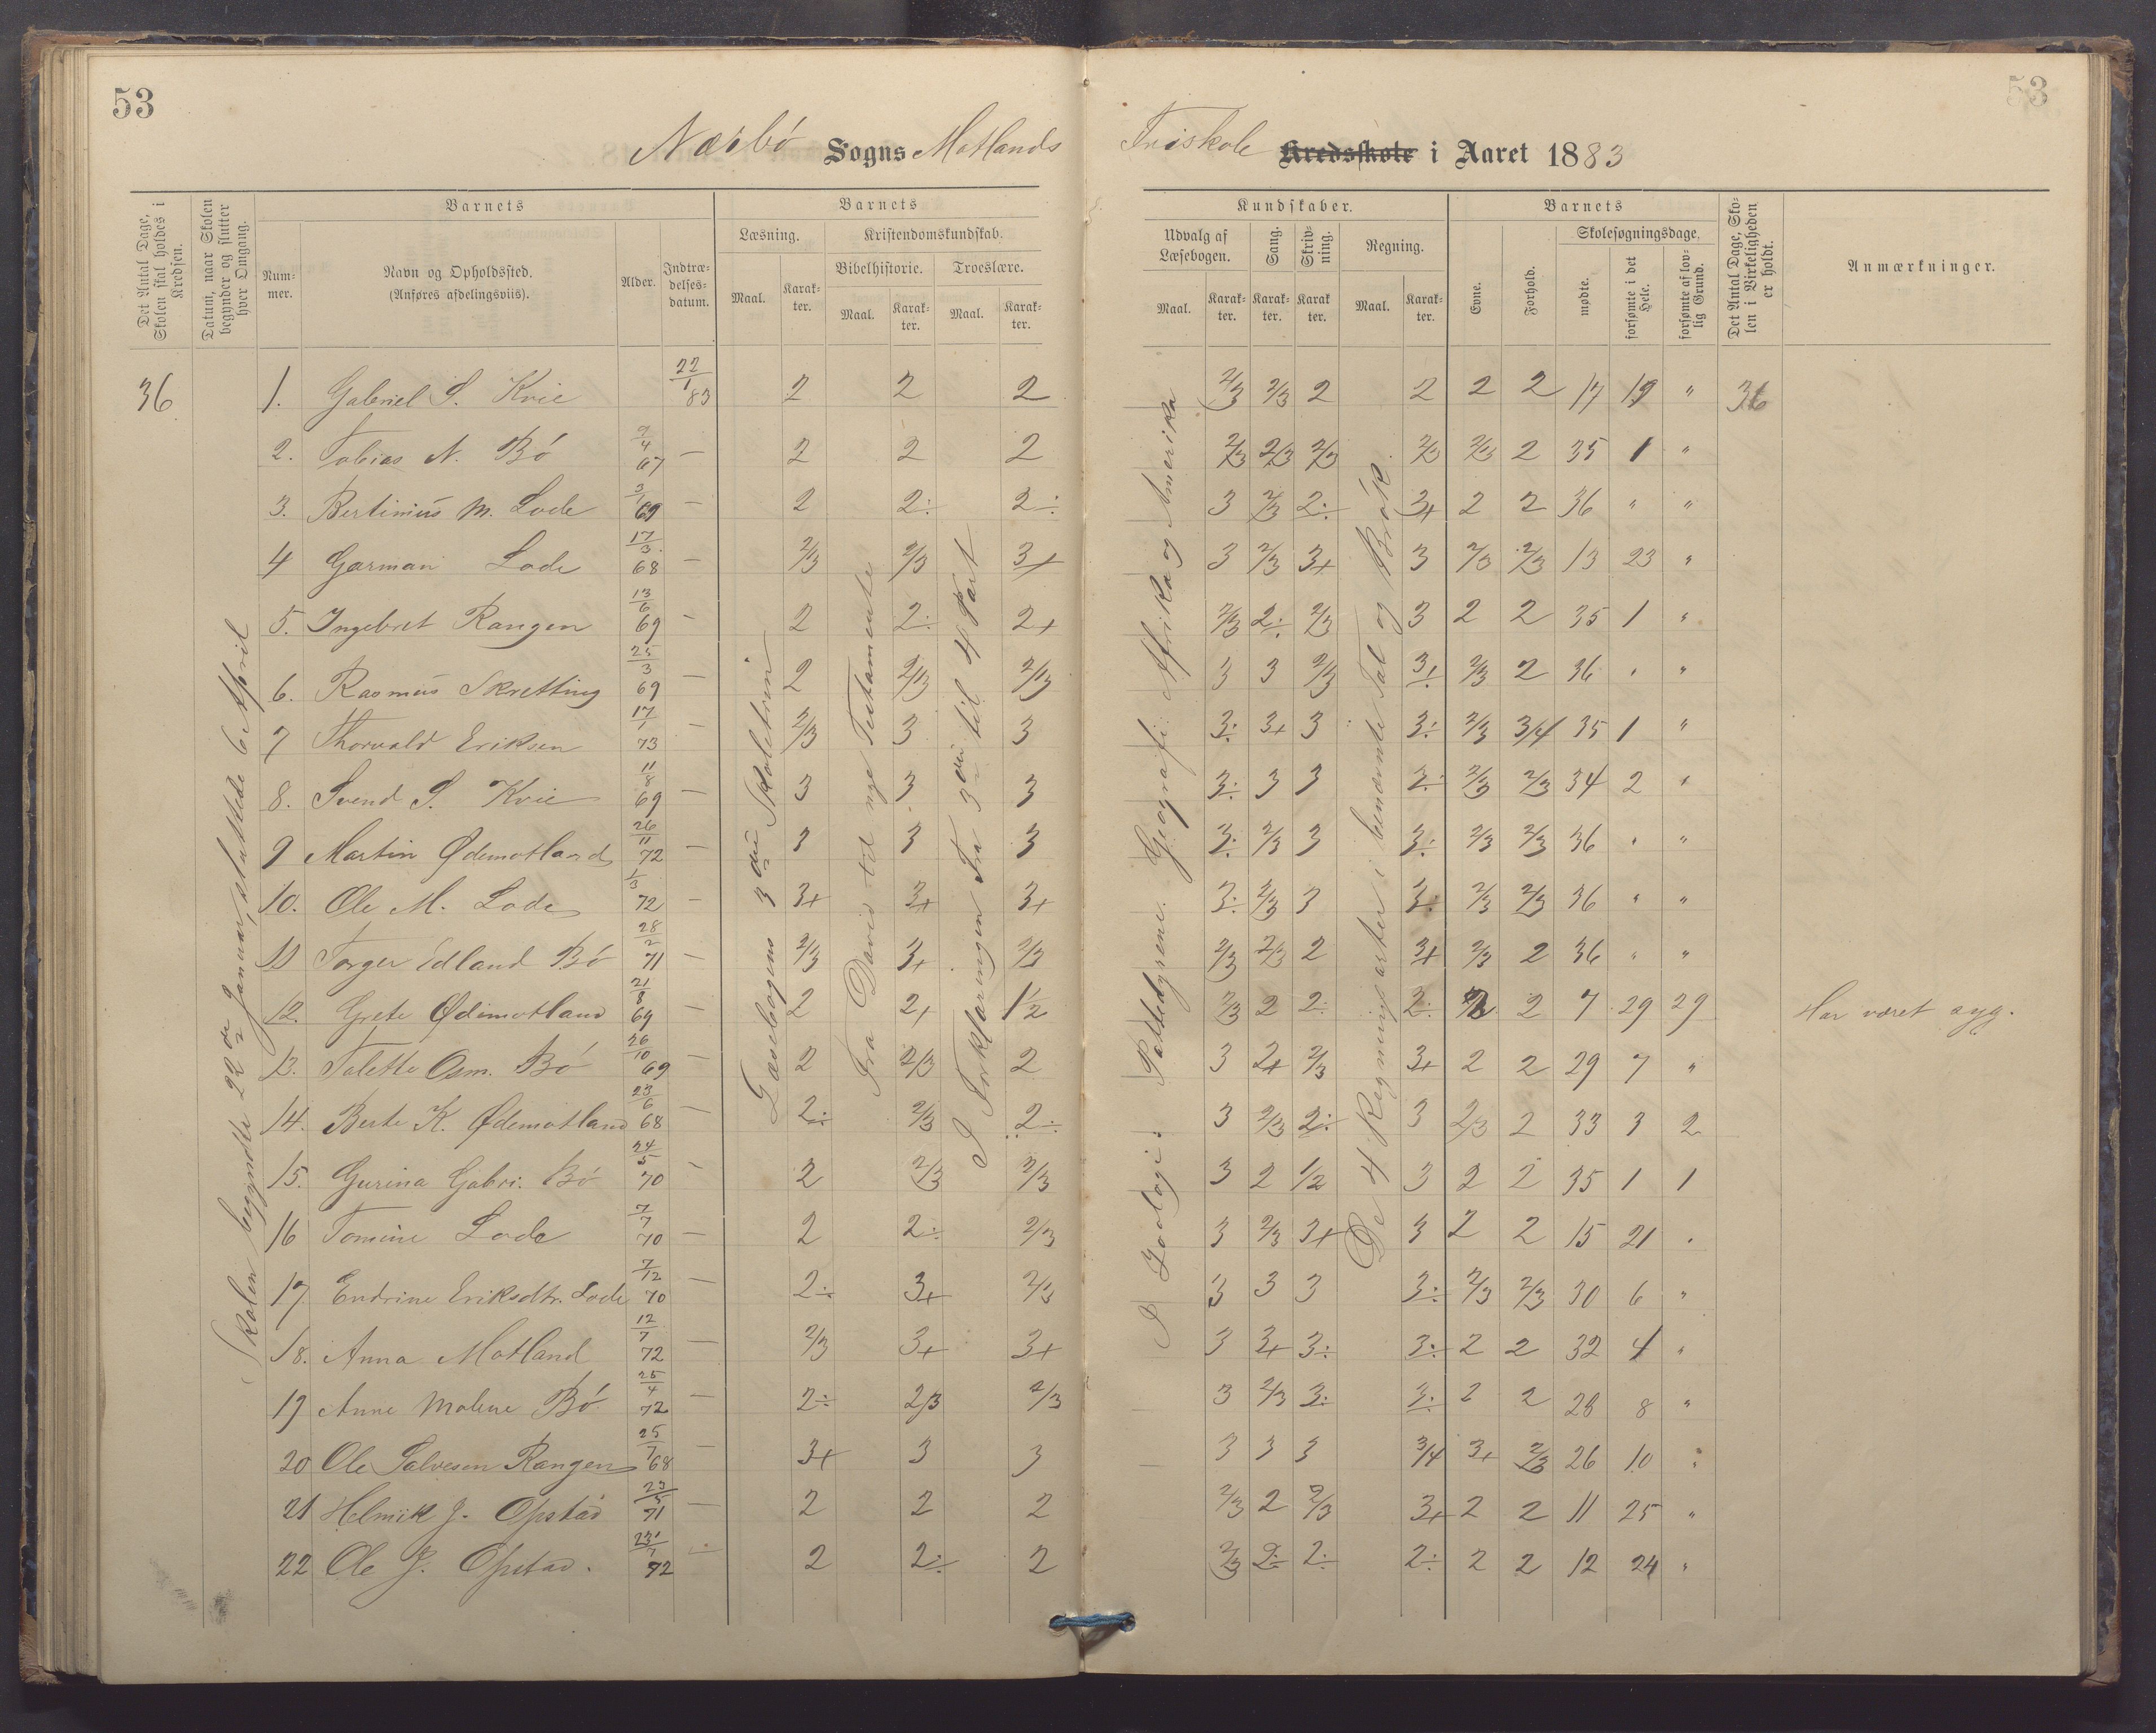 53
53
Nærbø Sogns Motlands Friskole Kredsskole i Aaret 1883
Det Antal Dage, Skolen skal holdes i Kredsen.
Datum, naar Skolen begynder og slutter hver Omgang.
Barnets
Num-mer.
Navn og Opholdssted.
(Anføres afdelingsviis).
Alder.
Indtræ-delses-datum.
Barnets
Læsning.
Kristendomskundskab.
Bibelhistorie.
Troeslære.
Maal.
Karak-ter.
Maal.
Karak-ter.
Maal.
Karak-ter.
Kundskaber.
Udvalg af Læsebogen.
Sang.
Skriv-ning.
Regning.
Maal.
Karak-ter.
Karak-ter.
Karak ter.
Maal.
Karak-ter.
Barnets
Evne.
Forhold.
Skolesøgningsdage.
mødte.
forsømte i det Hele.
forsømte af lov-lig Grund.
Det Antal Dage, Sko-len i Virkeligheden er holdt.
Anmærkninger.
Skolen begyndte 22de Januar, sluttede 6 April
Læsebogens 3die Skoletrin
Fra David til nye Testamente
I Forklaringen Fra 3die til 4 Part
I Zoologi: Pattedyrene. Geografi: Afrika og Amerika
De 4 Regningsarter i benævnte Tal og Brøk
36 1. Gabriel S. Kvie 22/1 83 2 2 2 2/3 2/3 2 2 2 2 17 19 " 36
2. Tobias N. Bø 9/4 67 — 2 2 2 2/3 2/3 2/3 2/3 2/3 2 35 1 "
3. Bertinius M. Lode 3/1 69 — 2 2÷ 2÷ 3 2/3 2÷ 3+ 2 2 36 " "
4 Garman Lode 17/3 68 — 2/3 2/3 3+ 3 2/3 3+ 3 2/3 2/3 13 23 "
5. Ingebret Rangen 13/6 69 — 2 2÷ 2+ 2/3 2÷ 2/3 3 2 2 35 1 "
6. Rasmus Skretting 25/3 69 — 2 2/3 2/3 3 3 2/3 3+ 2/3 2 36 " "
7 Thorvald Eriksen 17/1 73 — 2/3 3 3 3÷ 3+ 3 3÷ 2/3 3/4 35 1 "
8. Svend S. Kvie 11/8 69 — 3 3 3 3÷ 3 3 3÷ 2/3 2/3 34 2 "
9 Martin Ødemotland 26/11 72 — 3 3 3 3÷ 2/3 3 3÷ 2/3 2/3 36 " "
10. Ole M. Lode 1/3 72 — 3+ 3+ 3+ 3÷ 2/3 3 3÷ 2/3 2/3 36 " "
11 Torger Edland Bø 28/2 71 — 2/3 3+ 2/3 2/3 2/3 2 3+ 2/3 2 36 " "
12. Grete Ødemotland 21/8 69 — 2 2+ 1/2 2/3 2 2÷ 2÷ 2 2 7 29 29 Har været syg.
13. Talette Osm. Bø 26/10 69 — 2 2/3 2 3 2+ 2/3 3+ 2 2 29 7 "
14. Berte K. Ødemotland 23/6 68 — 2÷ 2/3 2÷ 3 2/3 2÷ 3 2/3 2 33 3 2
15. Gurina Gabri. Bø 24/5 70 — 2 2/3 2/3 3 2 1/2 3 2 2 35 1 1
16 Tomine Lode 7/7 70 — 2 2÷ 2/3 3 2/3 3+ 3 2 2 15 21 "
17. Endrine Eriksdtr. Lode 7/12 70 — 2÷ 3+ 2/3 3 3 3 3÷ 2/3 2/3 30 6 "
18. Anna Motland 12/7 72 — 2/3 3+ 3+ 3 3+ 3÷ 3÷ 2 2 32 4 "
19 Anne Malene Bø 25/4 72 — 2÷ 2/3 2/3 3 2/3 3÷ 3÷ 2 2 28 8 "
20 Ole Salvesen Rangen 25/7 68 — 3+ 3 3 3 3 3 3/4 3+ 2/3 26 10 "
21 Helmik J. Opstad 23/5 71 — 2 2 2 2/3 2 2/3 3+ 2 2 11 25 "
22 Ole J. Opstad. 23/7 72 — 2 2÷ 2 2/3 2÷ 2÷ 2÷ 2 2 12 24 "